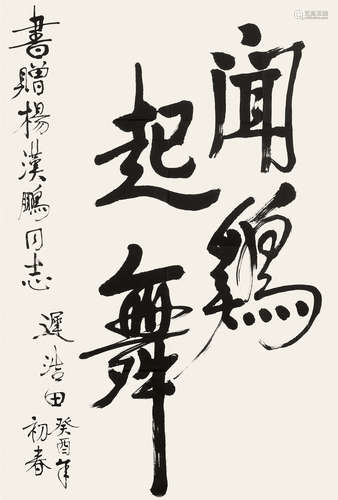 聞鷄
起舞
書贈楊漢鵬同志
遲浩田
癸酉年
初春